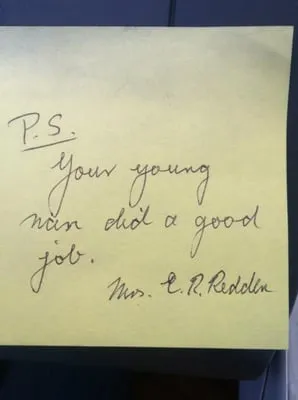 P.S.
Your young
man did a good
job.
Mrs. E. R. Redden